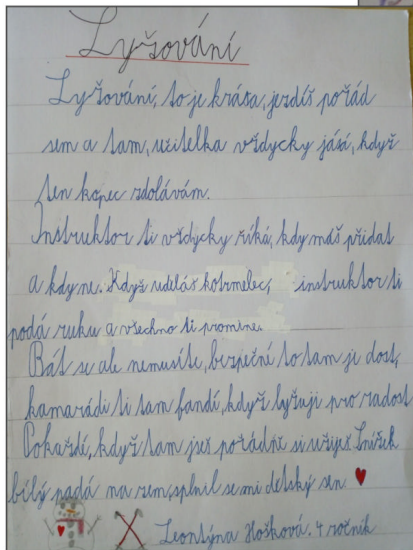 Lyžování
Lyžování, to je krása, jezdíš pořád
sem a tam, učitelka vždycky jásá, když
ten kopec zdolávám.
Instruktor ti vždycky říká, kdy máš přidat
a kdy ne. Když uděláš kotrmelec, instruktor ti
podá ruku a všechno ti promine.
Bát se ale nemusíte, bezpečné to tam je dost,
kamarádi ti tam fandí, když lyžuji pro radost
Pokaždé, když tam jseš pořádně si užiješ Snížek
bílý padá na zem, splnil se mi dětský sen
Leontýna Hošková. 4 ročník